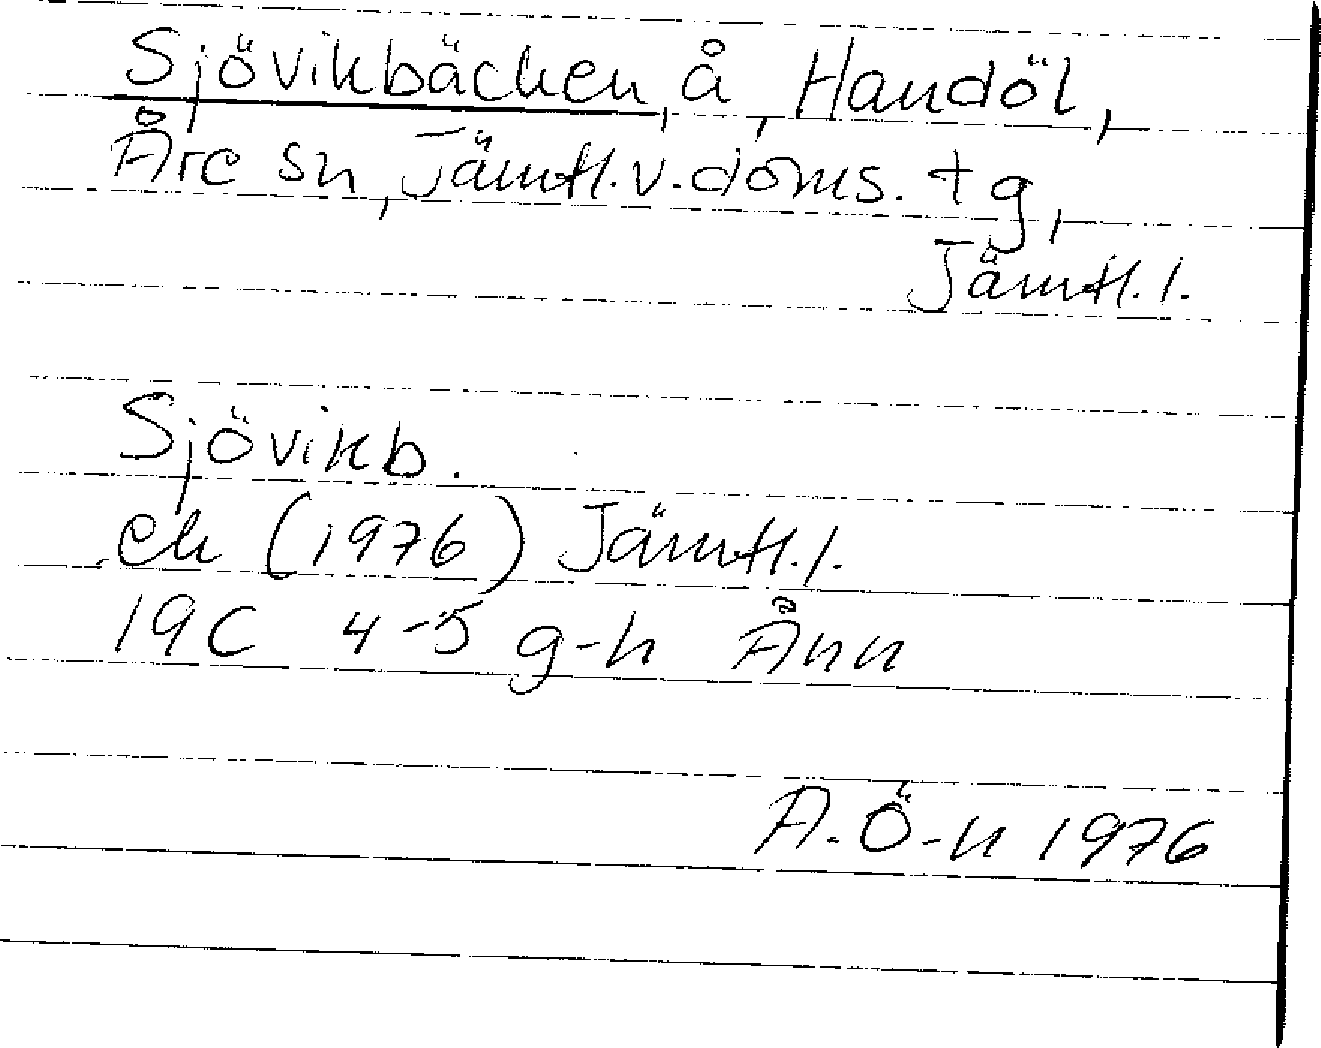 Sjövikbäcken, å, Handöl,
Åre sn, Jämtl. v. doms. tg,
Jämtl. l.
Sjövikb.
ek (1976) Jämtl. l.
19C 4-5 g-h Ånn
A. Ö-n 1976